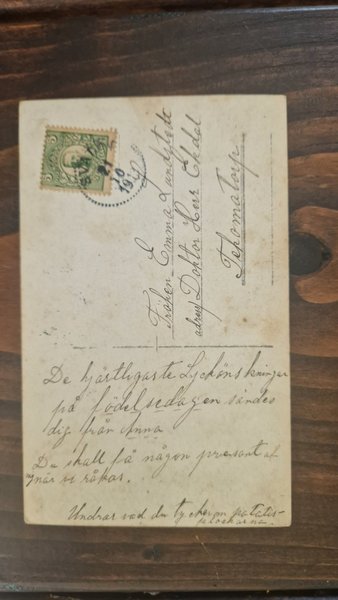 Fröken Emma Lundstedt
adress Doktor Herr Ekdal
Tekomatorp
De hjärtligaste Lyckönskningar
på födelsedagen sändes
dig från Anna
Du skall få någon presant af
mig när vi råkas.
Undrar vad du tycker om
21
10
5